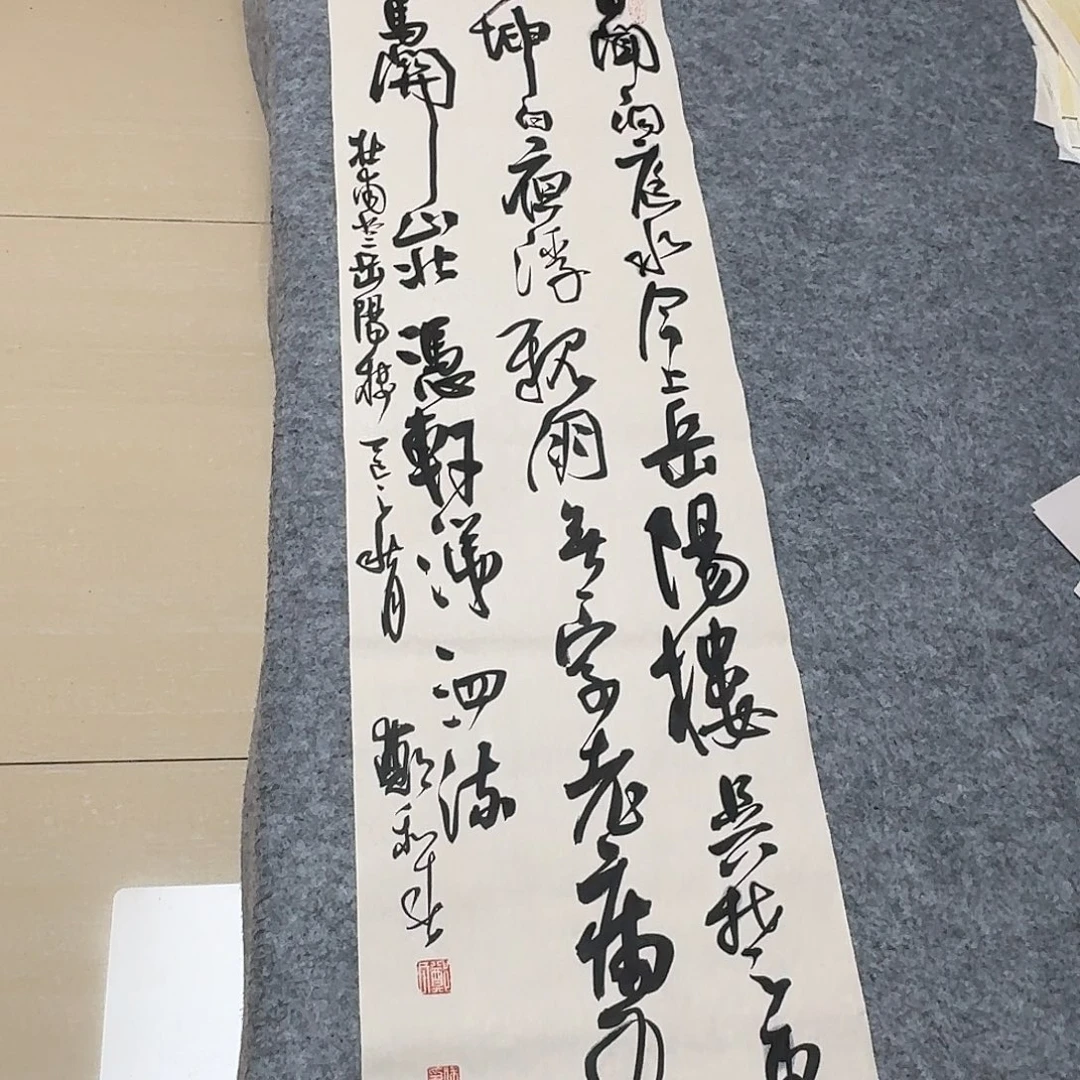 聞洞庭水今上岳陽樓吳楚東南
坤日夜浮親朋無一字老病有
馬關山北憑軒涕泗流
杜甫登岳陽樓 秋月 鄭和